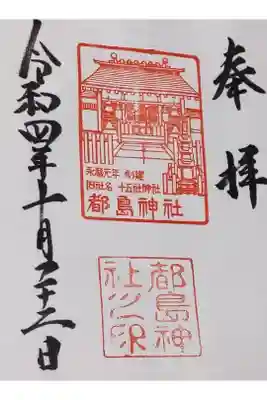 奉拝
永暦元年 創建
旧社名 十五社神社
都島神社
都島神
社之印
令和四年十月二十二日